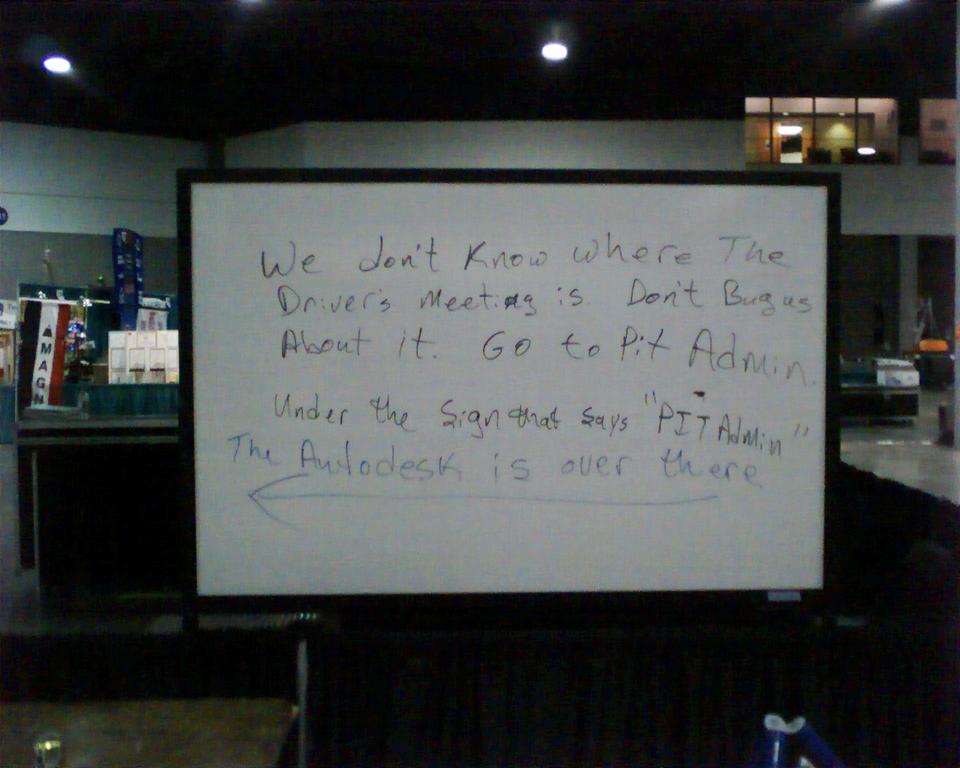 We don't Know where The
Driver's Meeting is. Don't Bug us
About it. Go to Pit Admin.
Under the Sign that says "PIT Admin"
The Autodesk is over there
MAGN